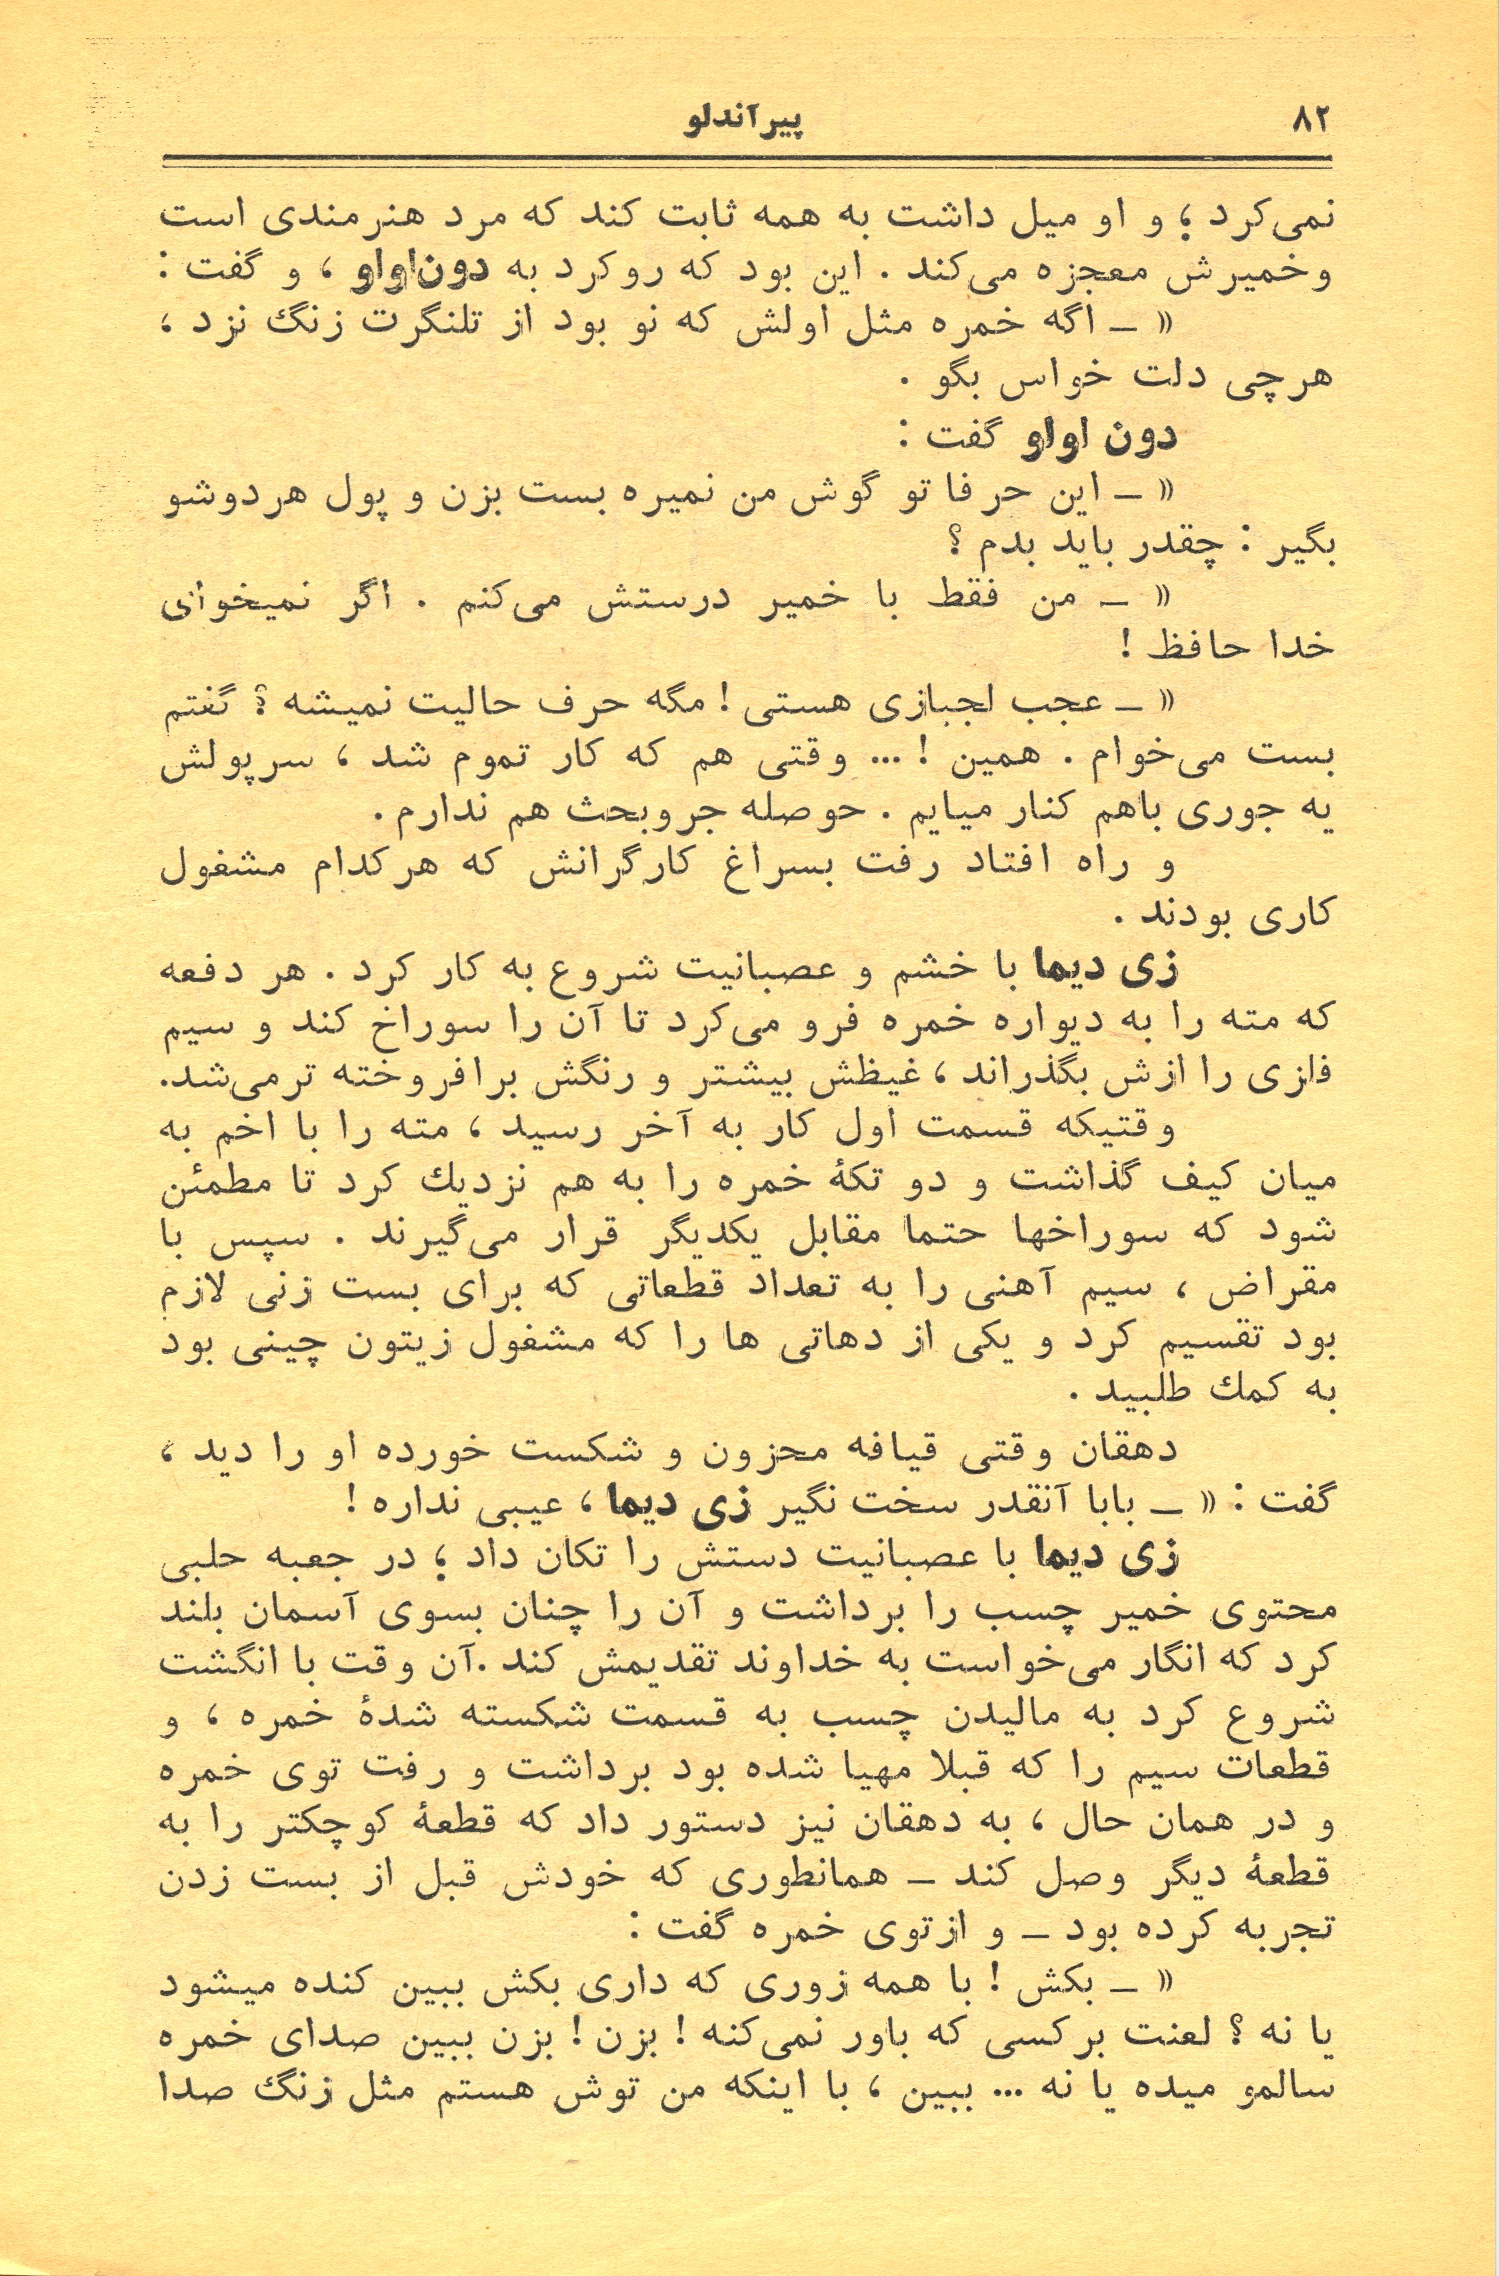 ۸۲
پیرآندلو
نمی‌کرد ؛ و او میل داشت به همه ثابت کند که مرد هنرمندی است
وخمیرش معجزه می‌کند . این بود که روکرد به دون‌اواو ، و گفت :
« ـ اگه خمره مثل اولش که نو بود از تلنگرت زنگ نزد ،
هرچی دلت خواس بگو .
دون اواو گفت :
« ـ این حرفا تو گوش من نمیره بست بزن و پول هردوشو
بگیر : چقدر باید بدم ؟
« ـ من فقط با خمیر درستش می‌کنم . اگر نمیخوای
خدا حافظ !
« ـ عجب لجبازی هستی ! مگه حرف حالیت نمیشه ؟ گفتم
بست می‌خوام . همین ! ... وقتی هم که کار تموم شد ، سرپولش
یه جوری باهم کنار میایم . حوصله جروبحث هم ندارم.
و راه افتاد رفت بسراغ کارگرانش که هرکدام مشغول
کاری بودند .
زی دیما با خشم و عصبانیت شروع به کار کرد . هر دفعه
که مته را به دیواره خمره فرو می‌کرد تا آن را سوراخ کند و سیم
فلزی را ازش بگذراند ، غیظش بیشتر و رنگش برافروخته ترمی‌شد.
وقتیکه قسمت اول کار به آخر رسید ، مته را با اخم به
میان کیف گذاشت و دو تکهٔ خمره را به هم نزدیك کرد تا مطمئن
شود که سوراخها حتما مقابل یکدیگر قرار می‌گیرند . سپس با
مقراض ، سیم آهنی را به تعداد قطعاتی که برای بست زنی لازم
بود تقسیم کرد و یکی از دهاتی ها را که مشغول زیتون چینی بود
به کمك طلبید .
دهقان وقتی قیافه محزون و شکست خورده او را دید ،
گفت : « ـ بابا آنقدر سخت نگیر زی دیما ، عیبی نداره !
زی دیما با عصبانیت دستش را تکان داد ؛ در جعبه حلبی
محتوی خمیر چسب را برداشت و آن را چنان بسوی آسمان بلند
کرد که انگار می‌خواست به خداوند تقدیمش کند .آن وقت با انگشت
شروع کرد به مالیدن چسب به قسمت شکسته شدهٔ خمره ، و
قطعات سیم را که قبلا مهیا شده بود برداشت و رفت توی خمره
و در همان حال ، به دهقان نیز دستور داد که قطعهٔ کوچکتر را به
قطعهٔ دیگر وصل کند ـ همانطوری که خودش قبل از بست زدن
تجربه کرده بود ـ و ازتوی خمره گفت :
« ـ بکش ! با همه زوری که داری بکش ببین کنده میشود
یا نه ؟ لعنت برکسی که باور نمی‌کنه ! بزن ! بزن ببین صدای خمره
سالمو میده یا نه ... ببین ، با اینکه من توش هستم مثل زنگ صدا